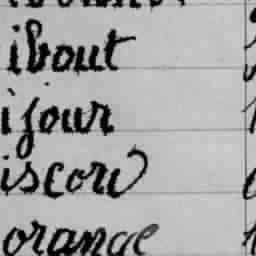 ibout
ijour
iscou
orange